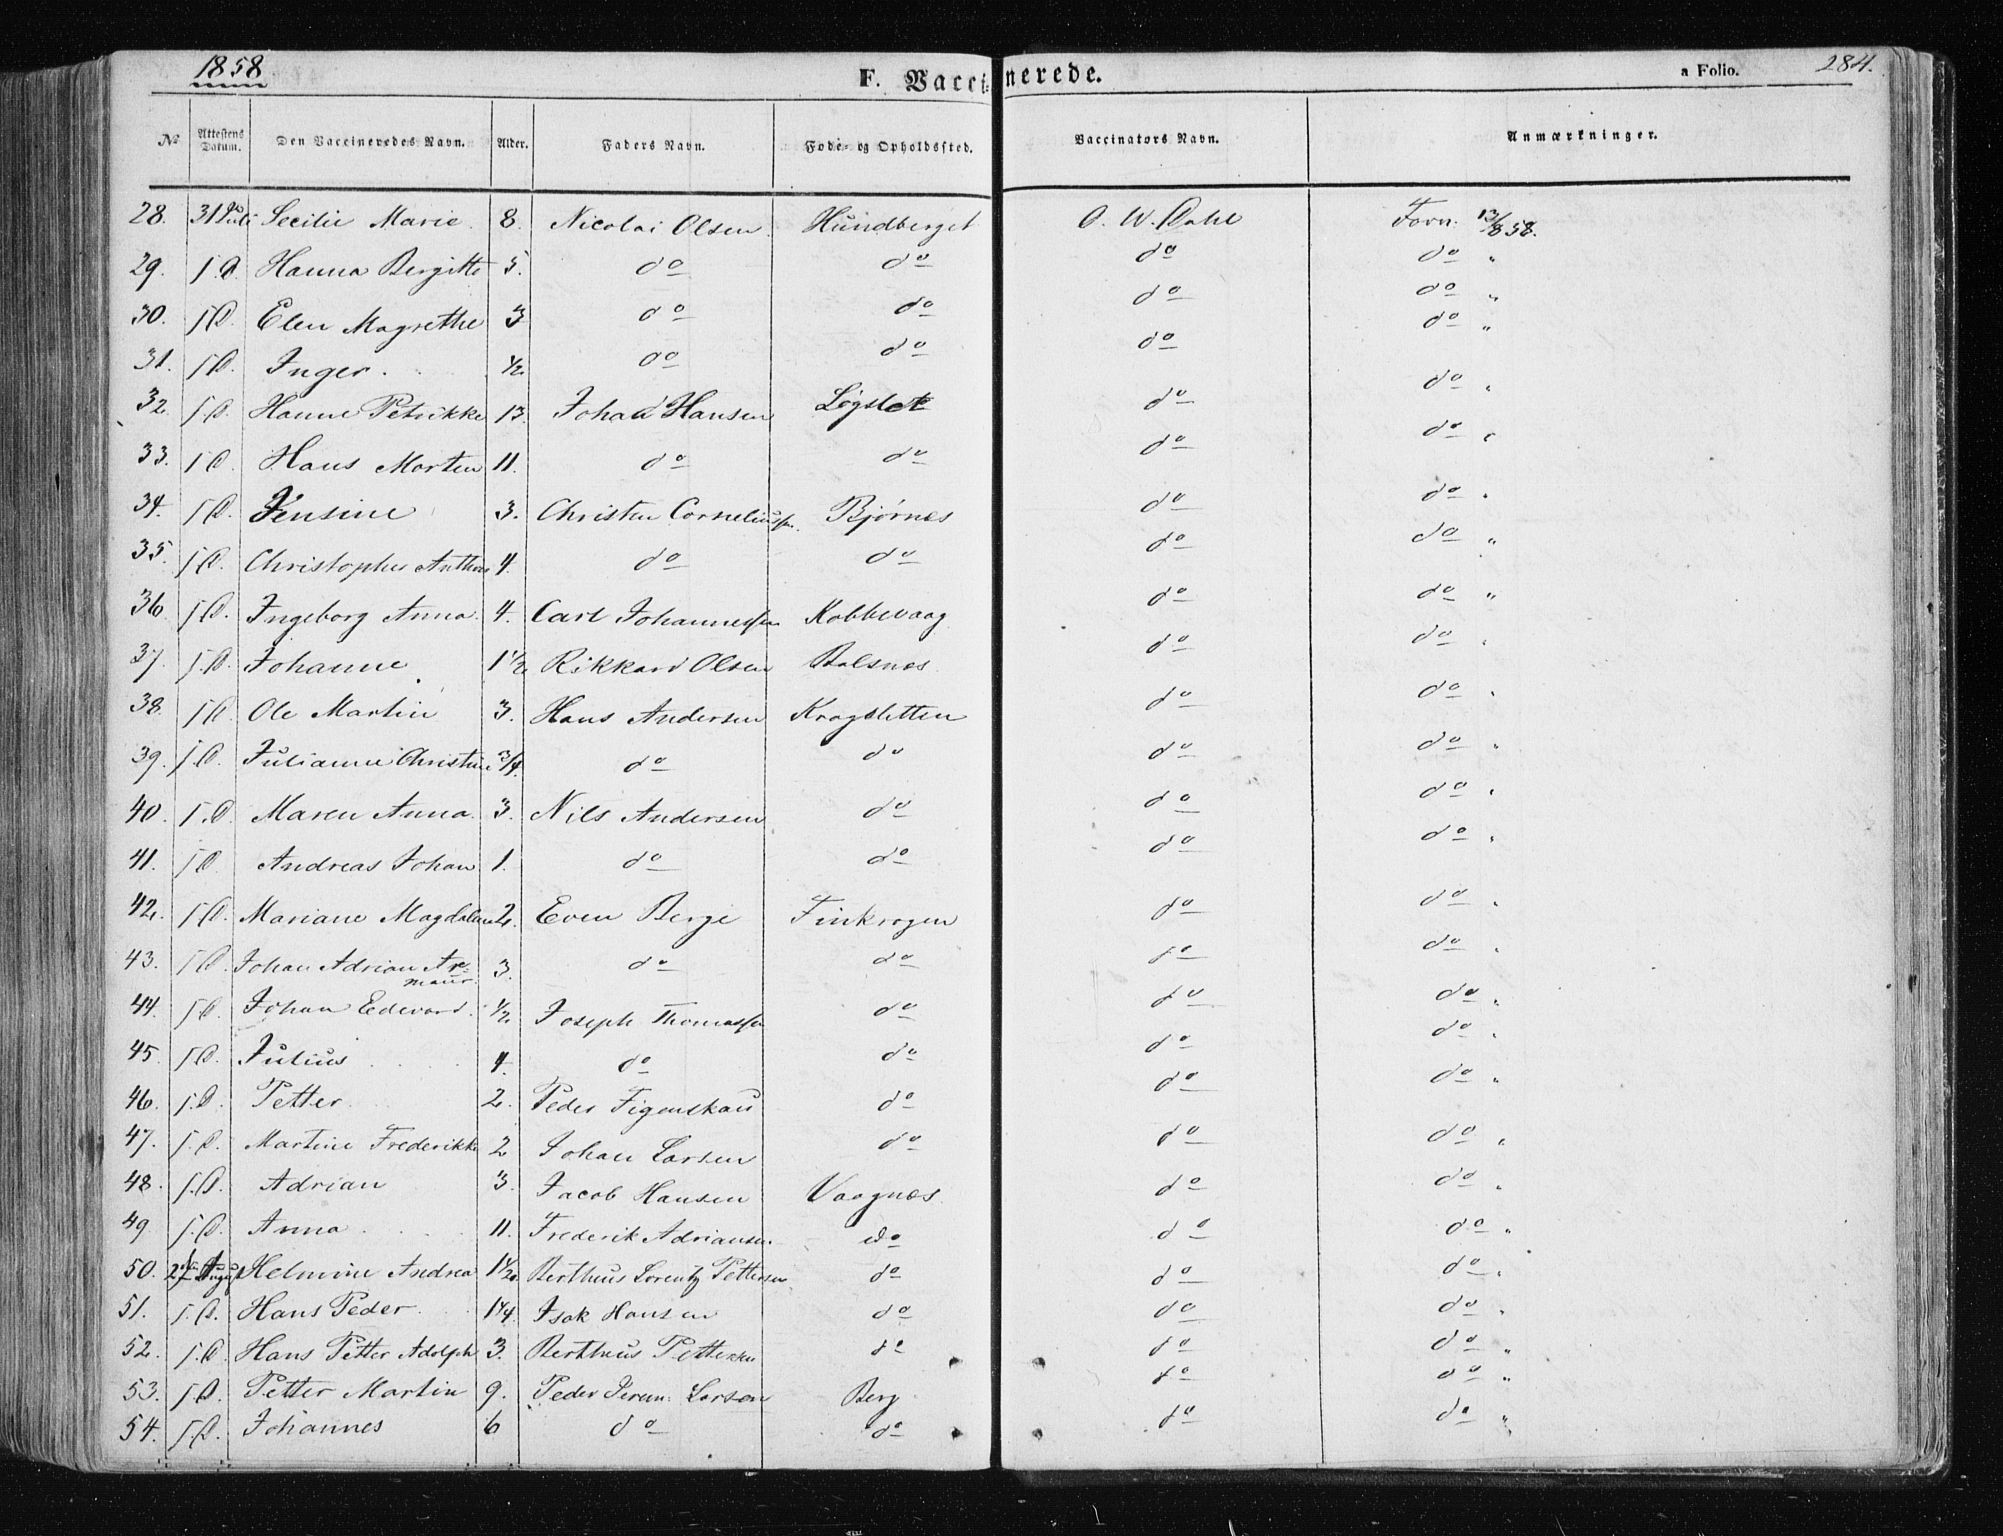 1858
F. Vaccinerede.
a Folio. 284.
No Attestens Datum. Den Vaccineredes Navn. Alder. Faders Navn. Føde- og Opholdssted. Vaccinators Navn. Anmærkninger.
28. 31 Juli Secilie Marie. 8. Nicolai Olsen. Hundberget O. W. Dahl Forn. 13/8 58.
29. s.D. Hanna Bergitte 5. do do do do "
30. s.D. Elen Magrethe 3 do do do do "
31. s.D. Inger. 1/2 do do do do "
32. s.D. Hanne Petrikke 13. Johan Hansen Løgslet do do "
33. s.D. Hans Morten 11. do do do do "
34. s.D. Jensine 3. Christen Corneliussen. Bjørnes do do "
35. s.D. Christopher Anthon 4. do do do do "
36. s.D. Ingeborg Anna. 4. Carl Johannessen Kobbevaag do do "
37. s.D. Johanne. 1 1/2 Rikkard Olsen Balsnes do do "
38. s.D. Ole Martin 3. Hans Andersen Kragsletten do do "
39. s.D. Julianne Christine 3/4 do do do do "
40. s.D. Maren Anna. 3. Nils Andersen do do do "
41. s.D. Andreas Johan 1. do do do do "
42. s.D. Mariane Magdalene 2. Even Berge Finkrogen do do "
43. s.D. Johan Adrian Are-
maur. 3. do do do do "
44. s.D. Johan Edevard. 1/2 Joseph Thomassen do do do "
45. s.D. Julius 4. do do do do "
46. s.D. Petter 2. Peder Figenskau do do do "
47. s.D. Martine Frederikke 2 Johan Larsen do do do "
48. s.D. Adrian 3. Jacob Hansen Vaagnes do do "
49. s.D. Anna 11. Frederik Adriansen. do do do "
50. 27 August Helmine Andrea Bertheus Lorentz Pettersen do do do "
51. s.D. Hans Peder 1 1/4 Isak Hansen do do do "
52. s.D. Hans Petter Adolph 3. Bertheus Pettersen do do do "
53. s.D. Petter Martin 9. Peder Jerem. Larsen Berg do do "
54. s.D. Johannes 6 do do do do "